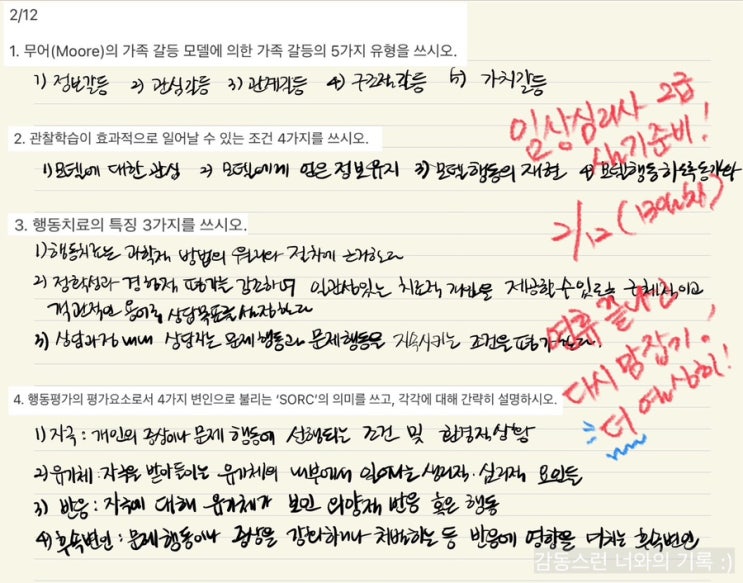 2/12
1. 무어(Moore)의 가족 갈등 모델에 의한 가족 갈등의 5가지 유형을 쓰시오.
1) 정보갈등 2) 관심갈등 3) 관계갈등 4) 구조적갈등 5) 가치갈등
임상심리사 2급
실기준비!
2. 관찰학습이 효과적으로 일어날 수 있는 조건 4가지를 쓰시오.
1) 모델에 대한 관심 2) 모델에게 얻은 정보유지 3) 모델 행동의 재현 4) 모델행동하도록 동기화
2/12 (13일차)
3. 행동치료의 특징 3가지를 쓰시오.
1) 행동치료는 과학적 방법의 원리와 절차에 근거한다
2) 정확성과 경험적 평가를 강조하며 일관성있는 치료적 개입을 제공할 수 있도록 구체적이고
객관적인 용어로 상담목표를 설정한다
3) 상담과정 내내 상담자는 문제 행동과 문제행동을 지속시키는 조건을 평가한다.
연휴 끝나고
다시 맘잡기!
더 열심히!
4. 행동평가의 평가요소로서 4가지 변인으로 불리는 ‘SORC’의 의미를 쓰고, 각각에 대해 간략히 설명하시오.
1) 자극 : 개인의 증상이나 문제 행동에 선행되는 조건 및 환경적 상황
2) 유기체 : 자극을 받아들이는 유기체의 내부에서 일어나는 생리적·심리적 요인들
3) 반응 : 자극에 대해 유기체가 보인 외양적 반응 혹은 행동
4) 후속변인 : 문제행동이나 증상을 강화하거나 처벌하는 등 반응에 영향을 미치는 후속변인
감동스런 너와의 기록 :)